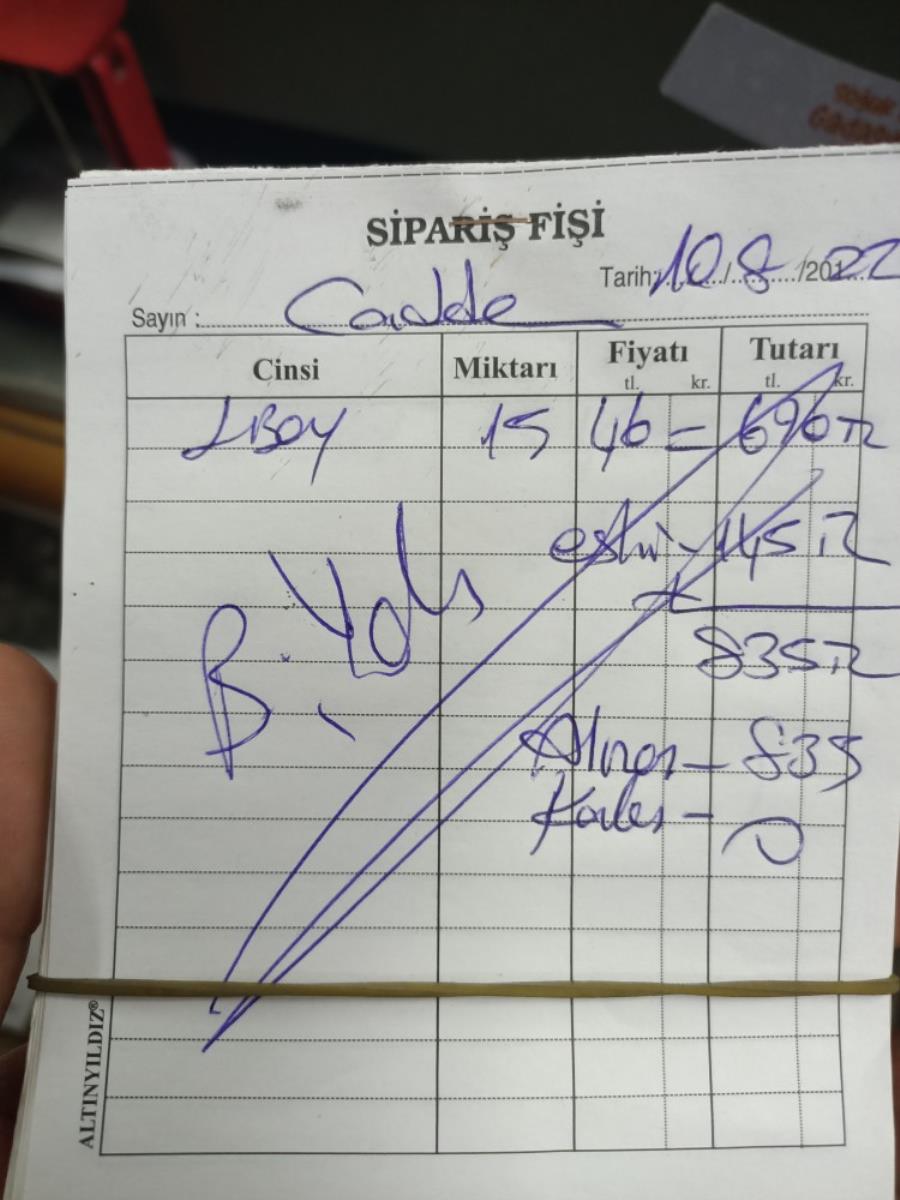 SİPARİŞ FİŞİ
Tarih: 10/8/2022
Sayın : Cadde
Cinsi Miktarı Fiyatı Tutarı
tl. kr. tl. kr.
LBOY 15 46 = 690 TL
eski - 145 TL
+
835 TL
B.
Alınan - 835
Kalan - 0
ALTINYILDIZ®